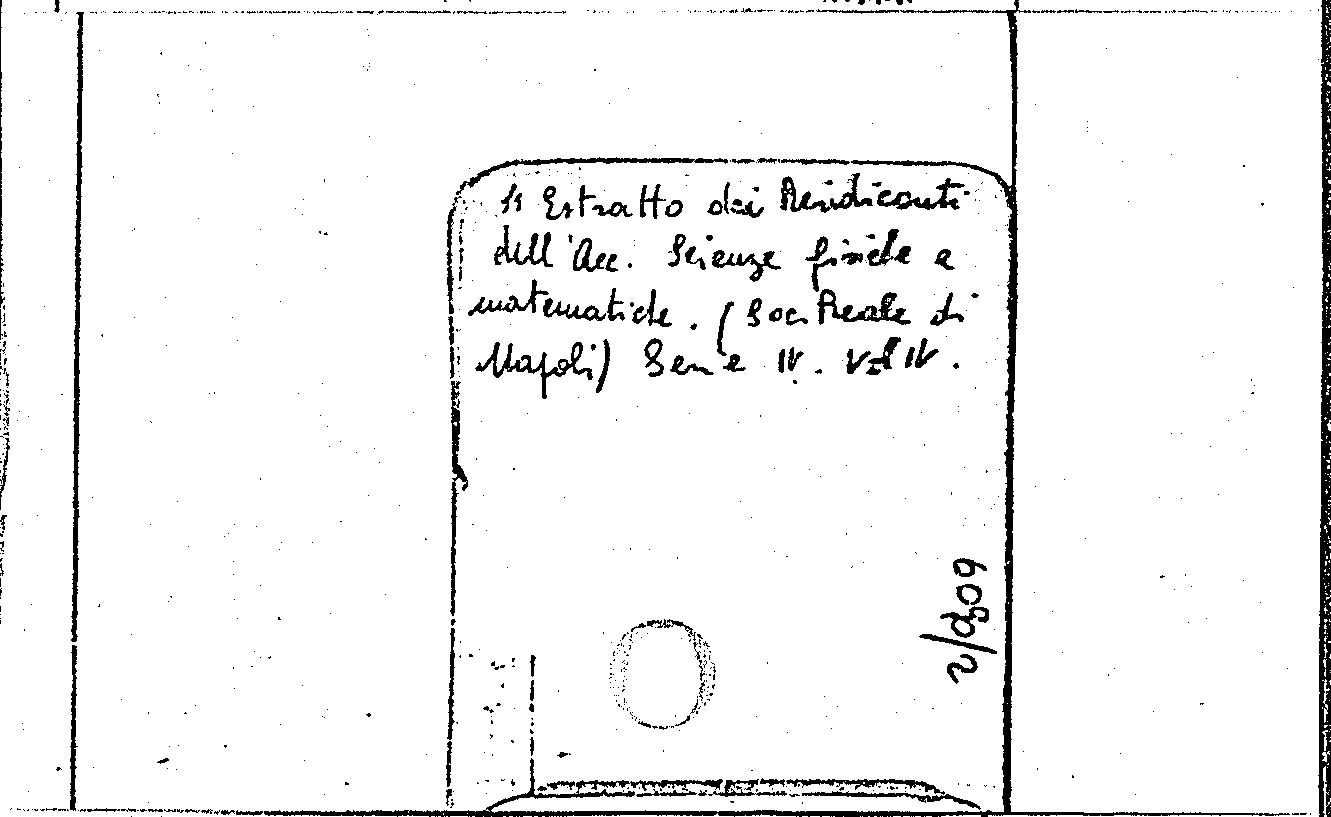 Estratto dei Rendiconti
dell'Acc. Scienze fisiche e
matematiche. (Soc. Reale di
Napoli) Serie IV. Vol IV.